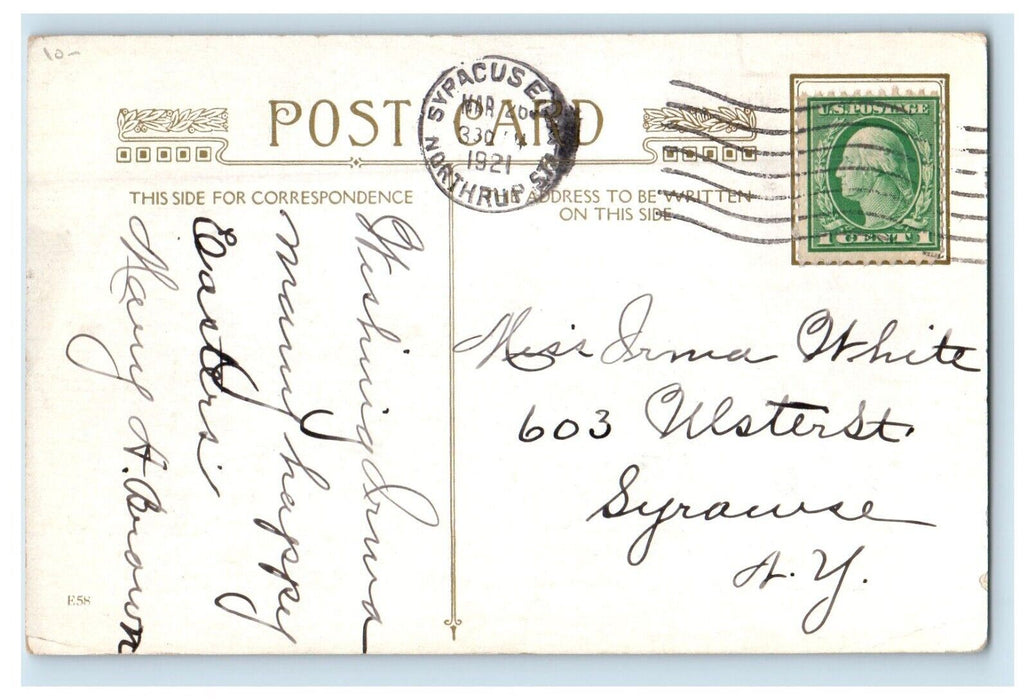 10-
POST CARD
SYRACUSE, N.Y.
MAR 26
330 PM
1921
NORTHRUP STA.
U.S. POSTAGE
1 CENT 1
THIS SIDE FOR CORRESPONDENCE
THE ADDRESS TO BE WRITTEN
ON THIS SIDE
Wishing Irma
many happy
Easters.
Mary A. Brown
Miss Irma White
603 Ulster St.
Syracuse
N.Y.
E58